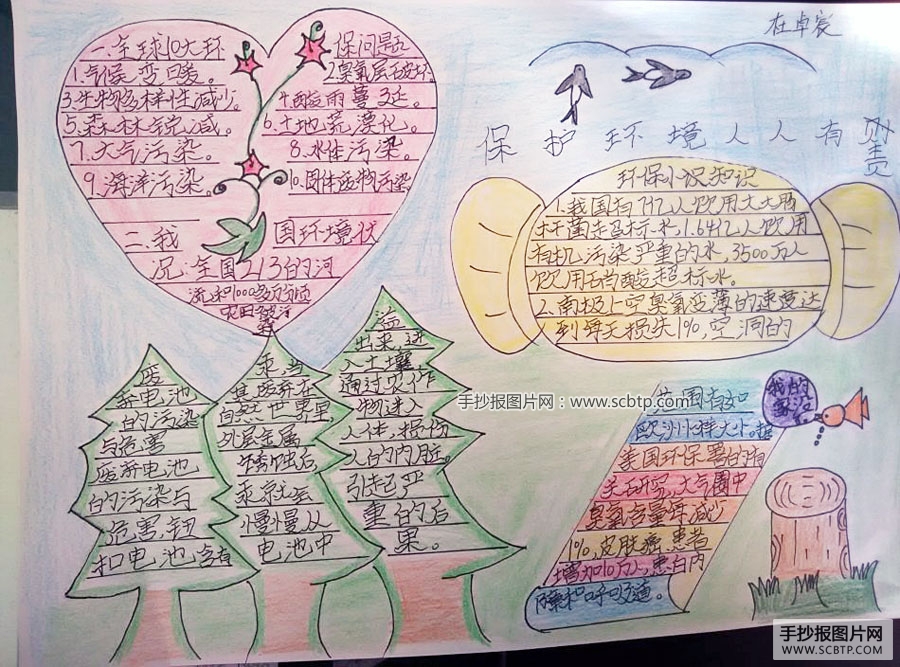 在卓宸
保护环境人人有责
一.全球10大环保问题
1.气候变暖。 2.臭氧层破坏
3.生物多样性减少。 4.酸雨蔓延。
5.森林锐减。 6.土地荒漠化。
7.大气污染。 8.水体污染。
9.海洋污染。 10.固体废物污染
二.我国环境状
况:全国2/3的河
流和1000多万公顷
农田
环保小识知识
1.我国有7亿人饮用大大肠
杆菌超标水,1.64亿人饮用
有机污染严重的水,3500万人
饮用硝酸超标水。
2.南极上空臭氧变薄的速度达
到每天损失1%,空洞的
范围有如
欧洲
美国环保署的有
关研究,大气圈中
臭氧含量每减少
1%,皮肤癌患者
增加10万人,患白内
障和呼吸道。
我的
家没
废
弃电池
的污染
与危害
废弃电池
的污染与
危害,钮
扣电池含有
汞,当
其废弃在
自然世界里,
外层金属
锈蚀后
汞就会
慢慢从
电池中
溢
出来,进
入土壤
通过农作
物进入
人体,损伤
人的内脏。
引起严
重的后
果。
手抄报图片网:www.scbtp.com
手抄报图片网
WWW.SCBTP.COM